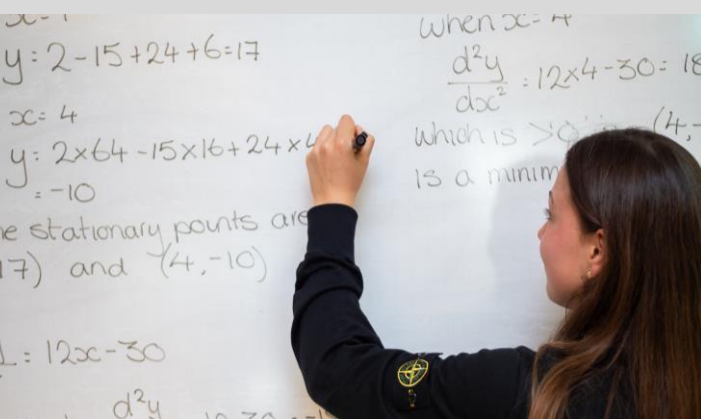 y = 2-15+24+6=17
x = 4
y = 2×64 -15×16+24×4
= -10
stationary points are
17) and (4,-10)
= 12x-30
d²y
when x = 4
d²y/dx² = 12×4-30= 18
which is >0 (4,-
is a minim